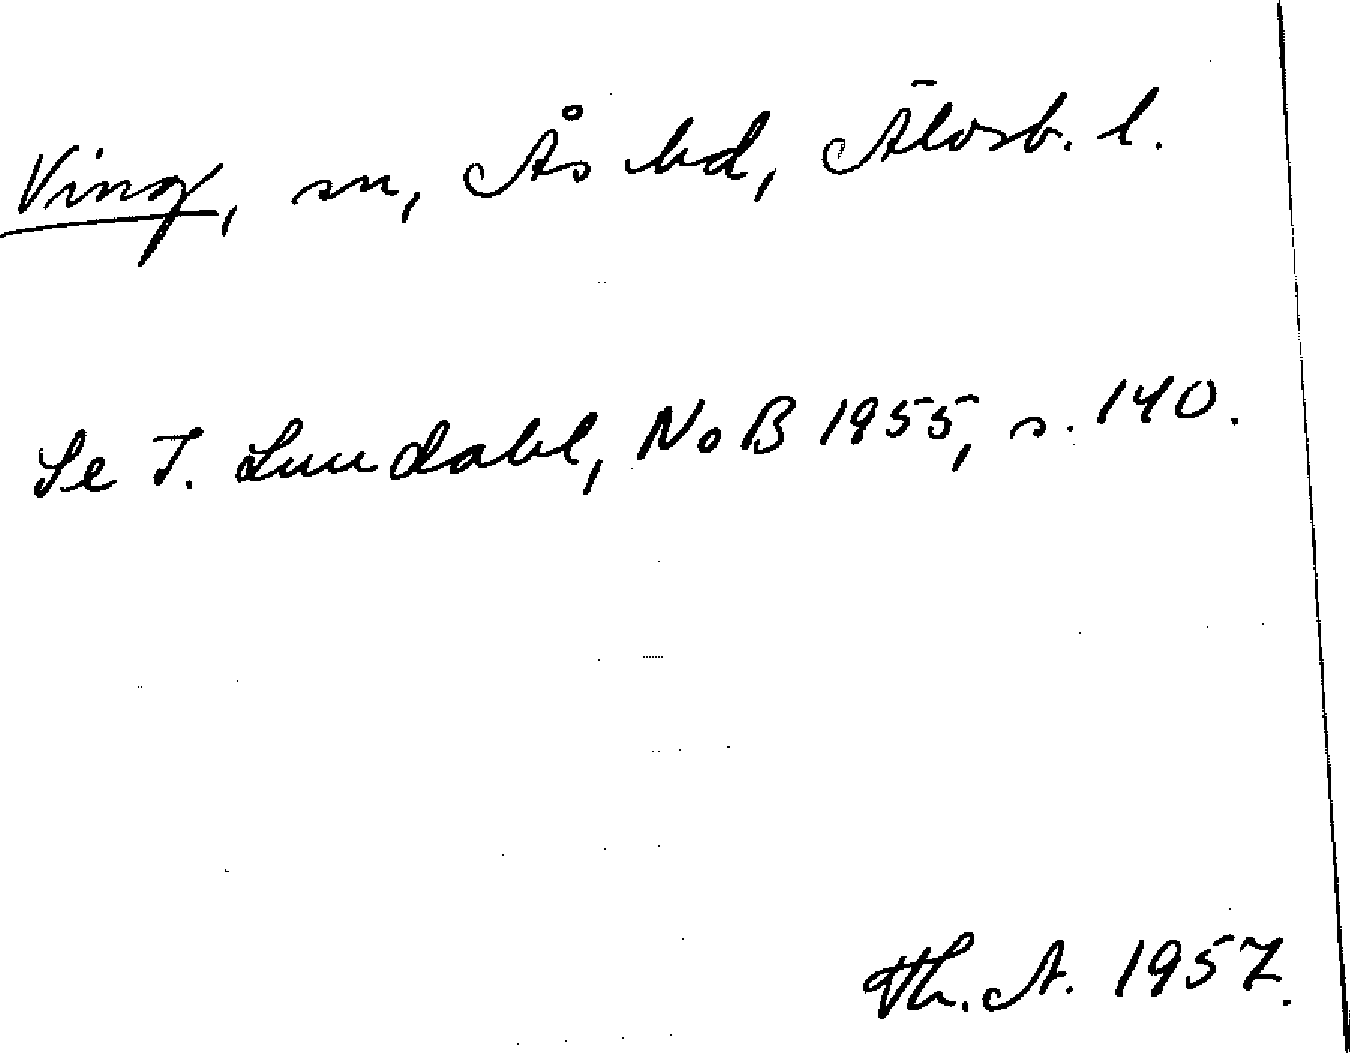 Ving, sn, Ås hd, Älvsb. l.
Se I. Lundahl, NoB 1955, s. 140.
Th. A. 1957.